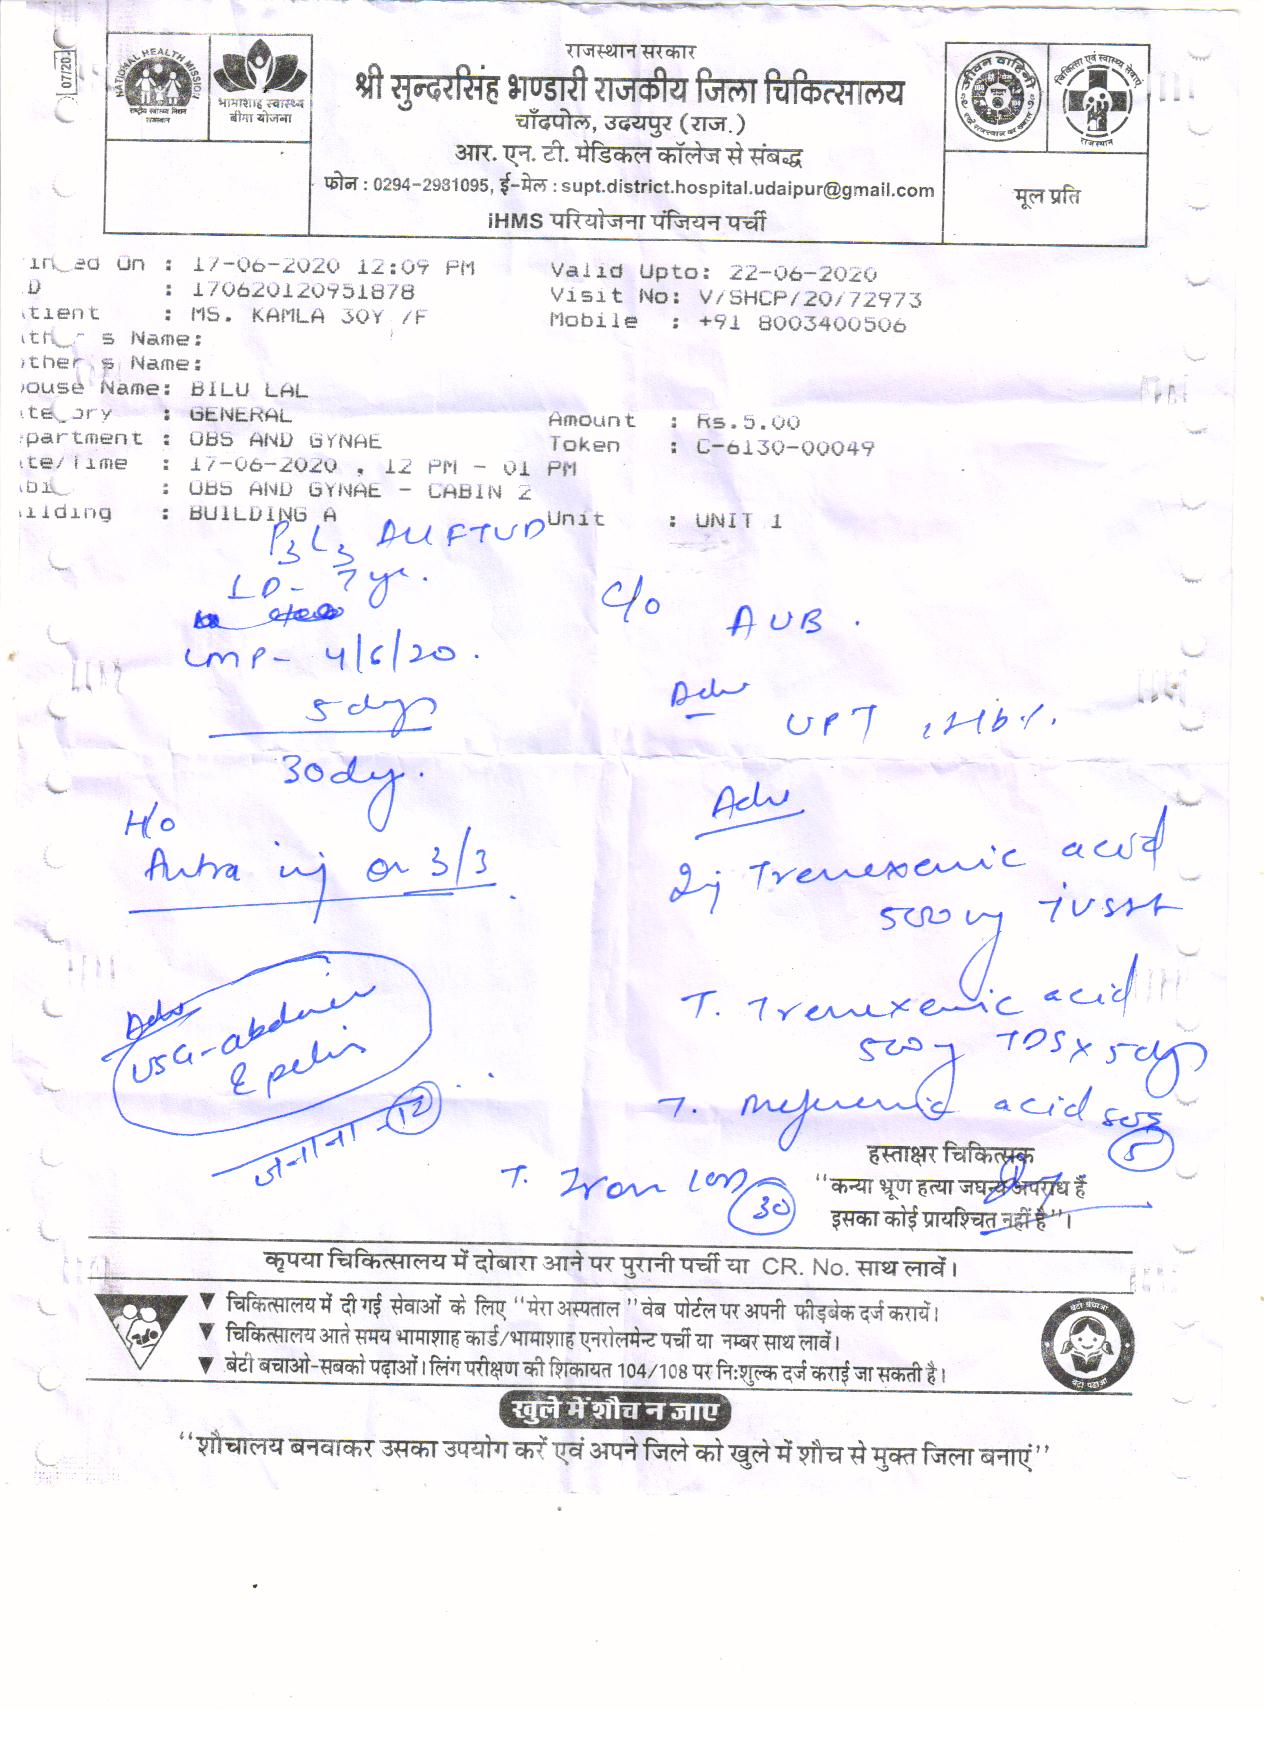 07/20
NATIONAL HEALTH MISSION
भामाशाह स्वास्थ्य
बीमा योजना
राजस्थान सरकार
श्री सुन्दरसिंह भण्डारी राजकीय जिला चिकित्सालय
चाँदपोल, उदयपुर (राज.)
आर. एन. टी. मेडिकल कॉलेज से संबद्ध
फोन : 0294-2981095, ई-मेल : supt.district.hospital.udaipur@gmail.com
iHMS परियोजना पंजियन पर्ची
जीवन वाहिनी
चिकित्सा एवं स्वास्थ्य सेवाएं
राजस्थान
मूल प्रति
On : 17-06-2020 12:09 PM Valid Upto: 22-06-2020
D : 170620120951878 Visit No: V/SHCP/20/72973
tient : MS. KAMLA 30Y /F Mobile : +91 8003400506
s Name:
ther s Name:
ouse Name: BILU LAL
ory : GENERAL Amount : Rs.5.00
partment : OBS AND GYNAE Token : C-6130-00049
te/Time : 17-06-2020 , 12 PM - 01 PM
: OBS AND GYNAE - CABIN 2
ilding : BUILDING A Unit : UNIT 1
P3L3 All FTVD
LD - 7 yr.
C/o AUB.
LMP - 4/6/20.
5 days
30 day.
Adv
UPT , Hb%.
H/o
Antra inj on 3/3
Adv
Inj Trenexenic acid
500 mg IV stat
T. Trenexenic acid
500 mg TDS x 5 days
T. Mefenemic acid SOS
5
T. Iron 30
Adv
USG - abdomen
& pelvis
जनाना - 12
हस्ताक्षर चिकित्सक
“कन्या भ्रूण हत्या जघन्य अपराध हैं
इसका कोई प्रायश्चित नहीं है”।
कृपया चिकित्सालय में दोबारा आने पर पुरानी पर्ची या CR. No. साथ लावें।
▼ चिकित्सालय में दी गई सेवाओं के लिए “मेरा अस्पताल” वेब पोर्टल पर अपनी फीड़बेक दर्ज करायें।
▼ चिकित्सालय आते समय भामाशाह कार्ड/भामाशाह एनरोलमेन्ट पर्ची या नम्बर साथ लावें।
▼ बेटी बचाओ-सबको पढ़ाओं। लिंग परीक्षण की शिकायत 104/108 पर नि:शुल्क दर्ज कराई जा सकती है।
खुले में शौच न जाए
“शौचालय बनवाकर उसका उपयोग करें एवं अपने जिले को खुले में शौच से मुक्त जिला बनाएं”